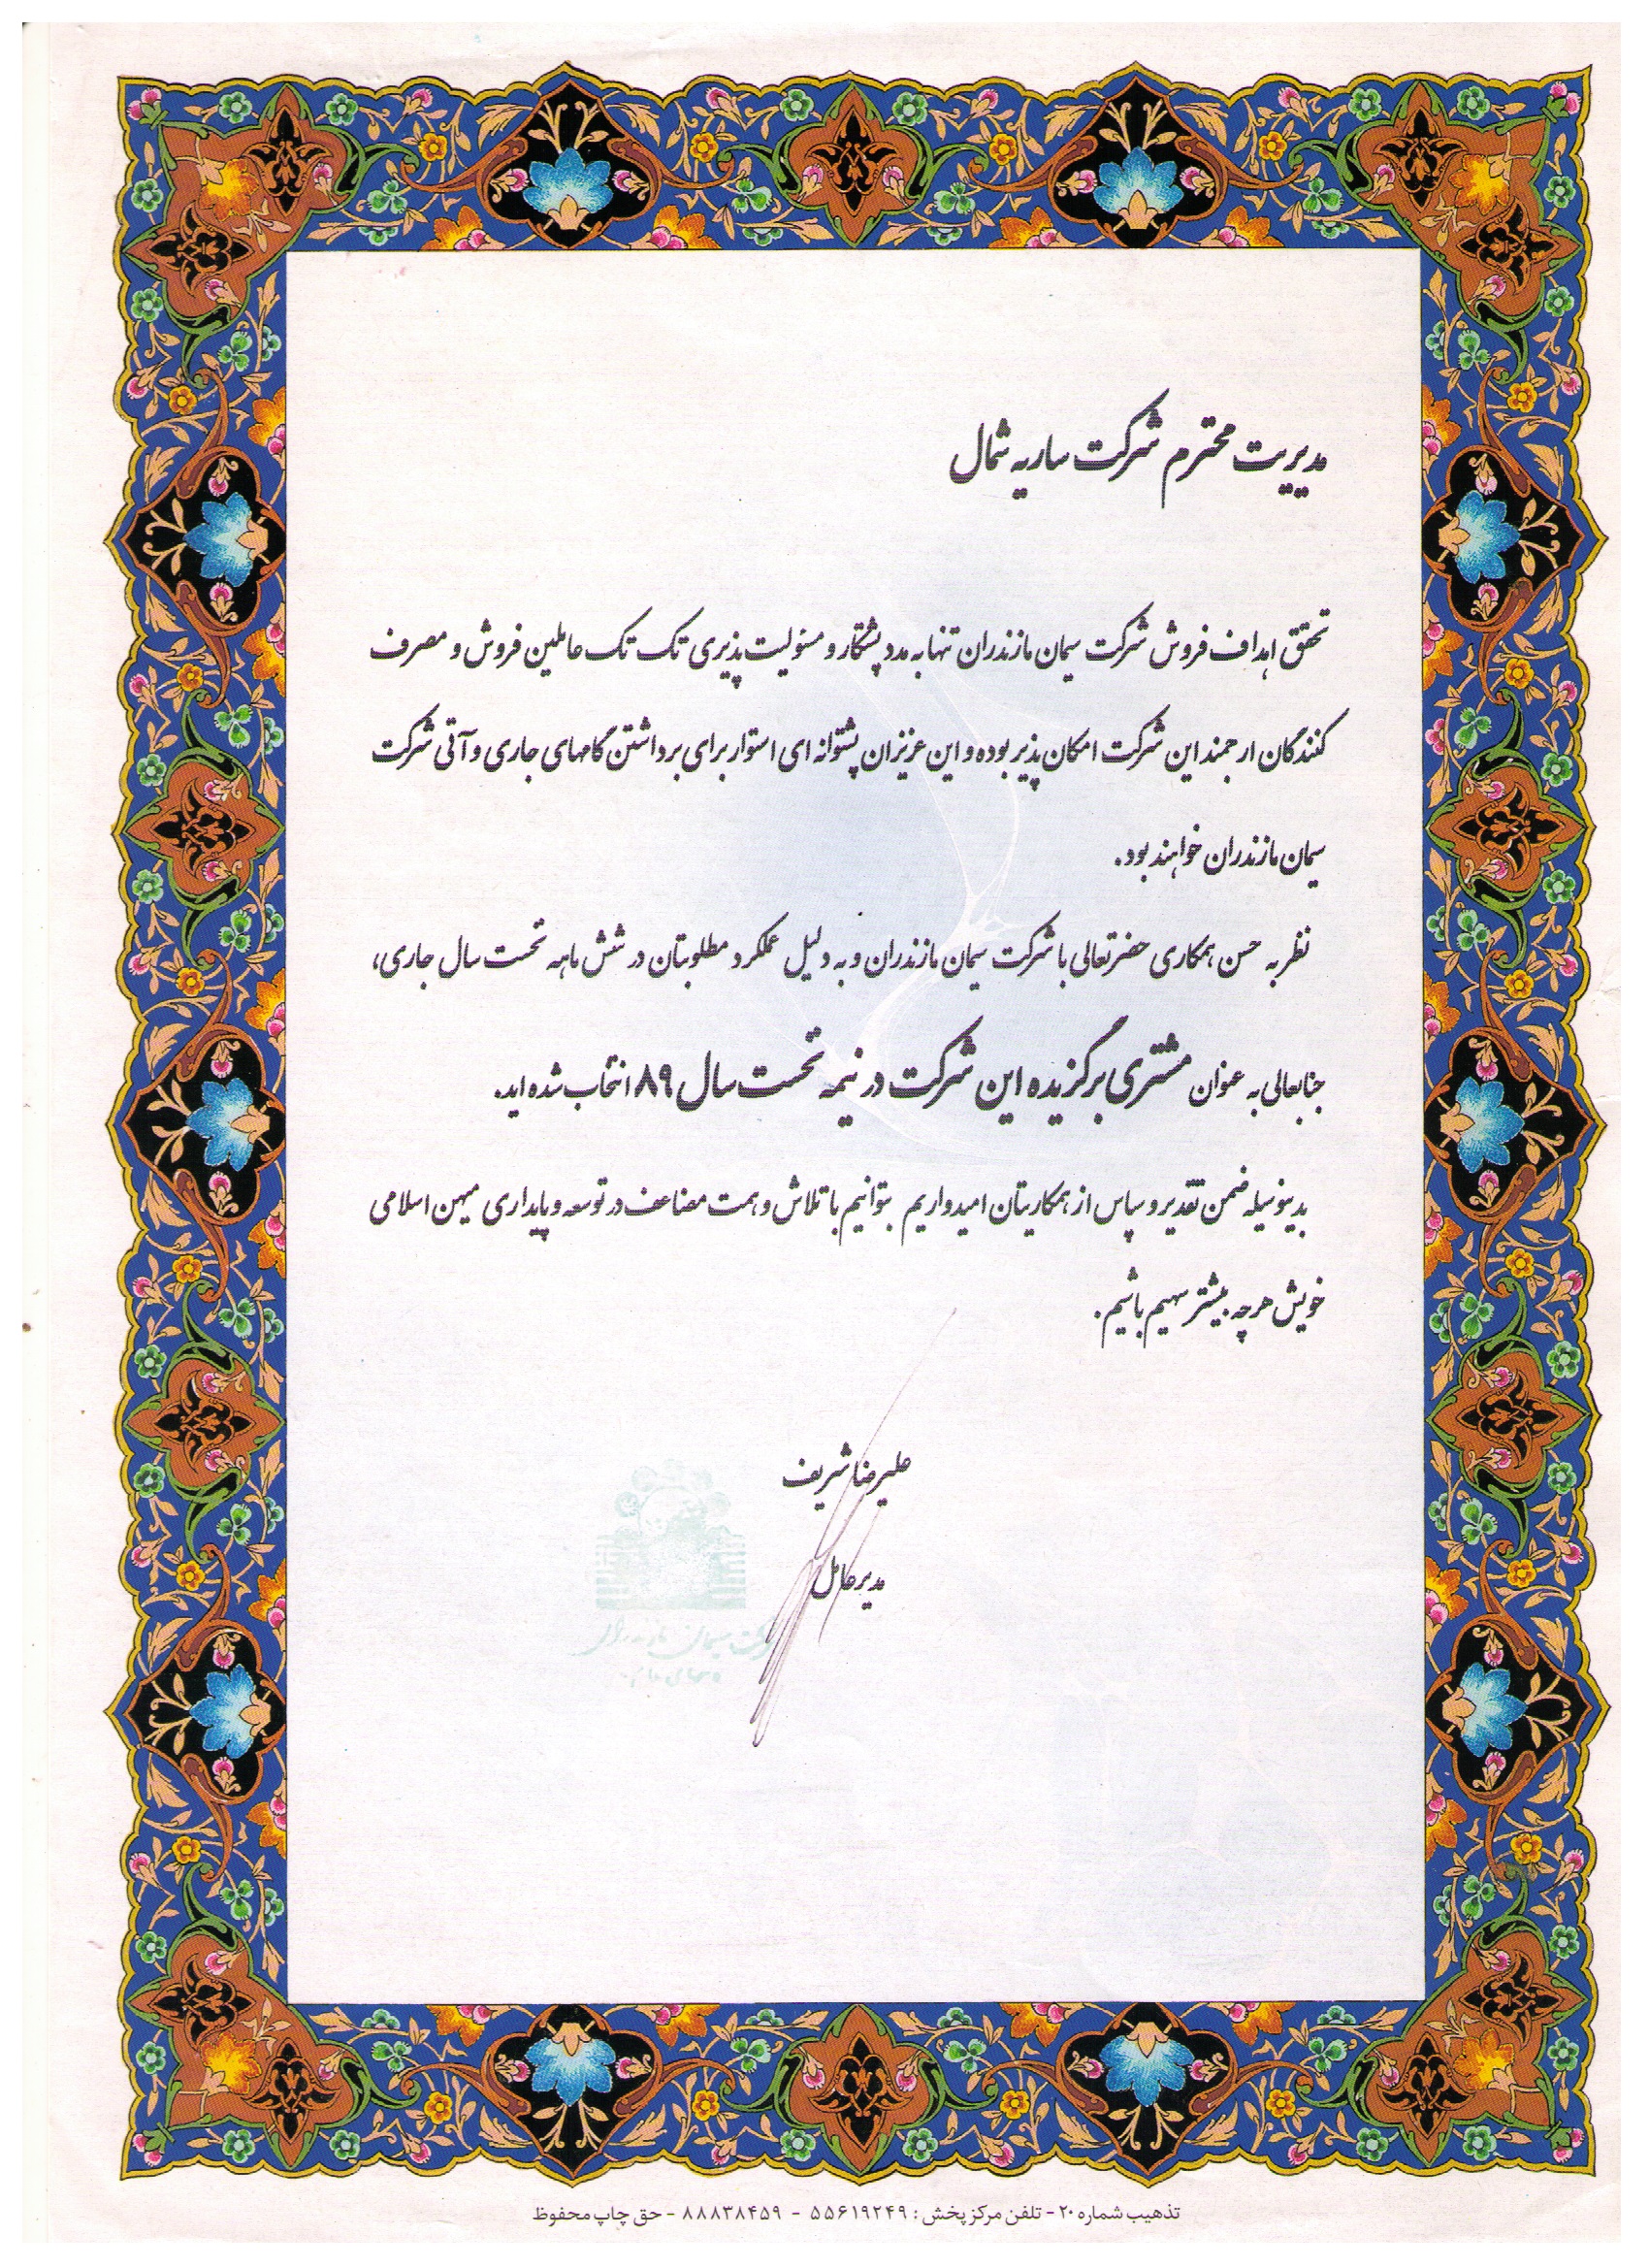 مدیریت محترم شرکت ساریه شمال
تحقق اهداف فروش شرکت سیمان مازندران تنها به مدد پشتکار و مسئولیت پذیری تک تک عاملین فروش و مصرف
کنندگان ارجمند این شرکت امکان پذیر بوده و این عزیزان پشتوانه ای استوار برای برداشتن گامهای جاری و آتی شرکت
سیمان مازندران خواهند بود.
نظر به حسن همکاری حضرتعالی با شرکت سیمان مازندران و به دلیل عملکرد مطلوبتان در شش ماهه نخست سال جاری،
جنابعالی به عنوان مشتری برگزیده این شرکت در نیمه نخست سال ۸۹ انتخاب شده اید.
بدینوسیله ضمن تقدیر و سپاس از همکاریتان امیدواریم بتوانیم با تلاش و همت مضاعف در توسعه و پایداری میهن اسلامی
خویش هرچه بیشتر سهیم باشیم.
علیرضا شریف
مدیرعامل
شرکت سیمان مازندران
تذهیب شماره ۲۰ - تلفن مرکز پخش : ۵۵۶۱۹۲۴۹ - ۸۸۸۳۸۴۵۹ - حق چاپ محفوظ